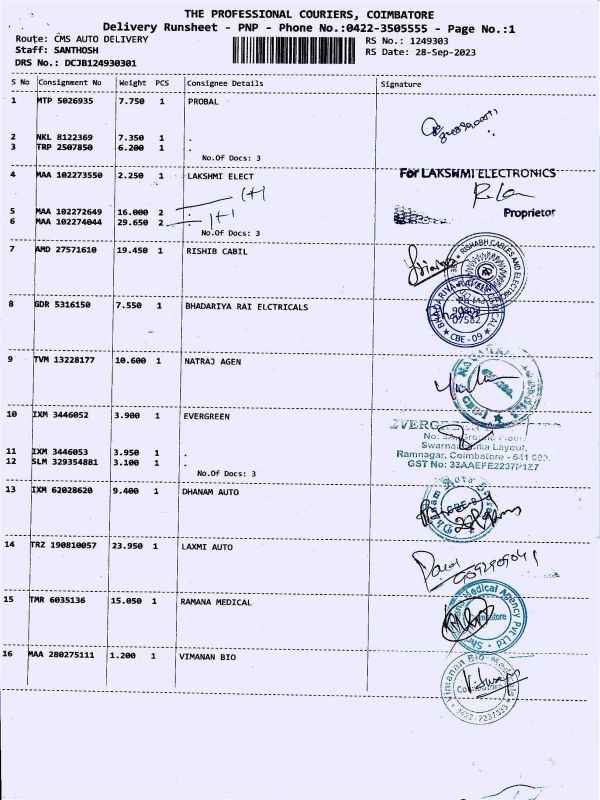 THE PROFESSIONAL COURIERS, COIMBATORE
Delivery Runsheet - PNP - Phone No.:0422-3505555 - Page No.:1
Route: CMS AUTO DELIVERY
RS No.: 1249303
Staff: SANTHOSH
RS Date: 28-Sep-2023
DRS No.: DCJB124930301
S No Consignment No Weight PCS Consignee Details Signature
1 MTP 5026935 7.750 1 PROBAL
2 NKL 8122369 7.350 1 .
3 TRP 2507850 6.200 1 .
No.Of Docs: 3
4 MAA 102273550 2.250 1 LAKSHMI ELECT
For LAKSHMI ELECTRONICS
1+1
5 MAA 102272649 16.000 2 .
Proprietor
6 MAA 102274044 29.650 2 : 1+1
No.Of Docs: 3
7 AMD 27571610 19.450 1 RISHIB CABIL
RISHABH CABLES AND ELECTRICAL
8 GDR 5316150 7.550 1 BHADARIYA RAI ELCTRICALS
BHADARIYA
CBE - 09
9 TVM 13228177 10.600 1 NATRAJ AGEN
10 IXM 3446052 3.900 1 EVERGREEN
Ramnagar, Coimbatore - 641 009.
11 IXM 3446053 3.950 1 .
12 SLM 329354881 3.100 1 .
No.Of Docs: 3
13 IXM 62028620 9.400 1 DHANAM AUTO
14 TRZ 190810057 23.950 1 LAXMI AUTO
15 TMR 6035136 15.050 1 RAMANA MEDICAL
Medical Agency Pvt Ltd
16 MAA 280275111 1.200 1 VIMANAN BIO
Vimanan Bio
0422 - 2237333